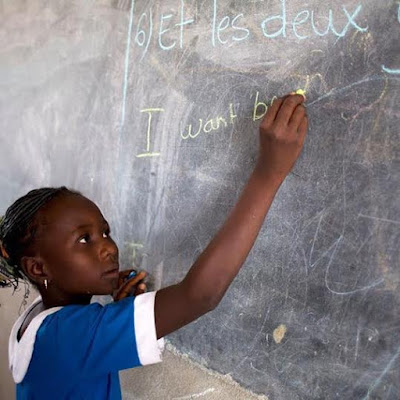 6) Et les deux
I want be